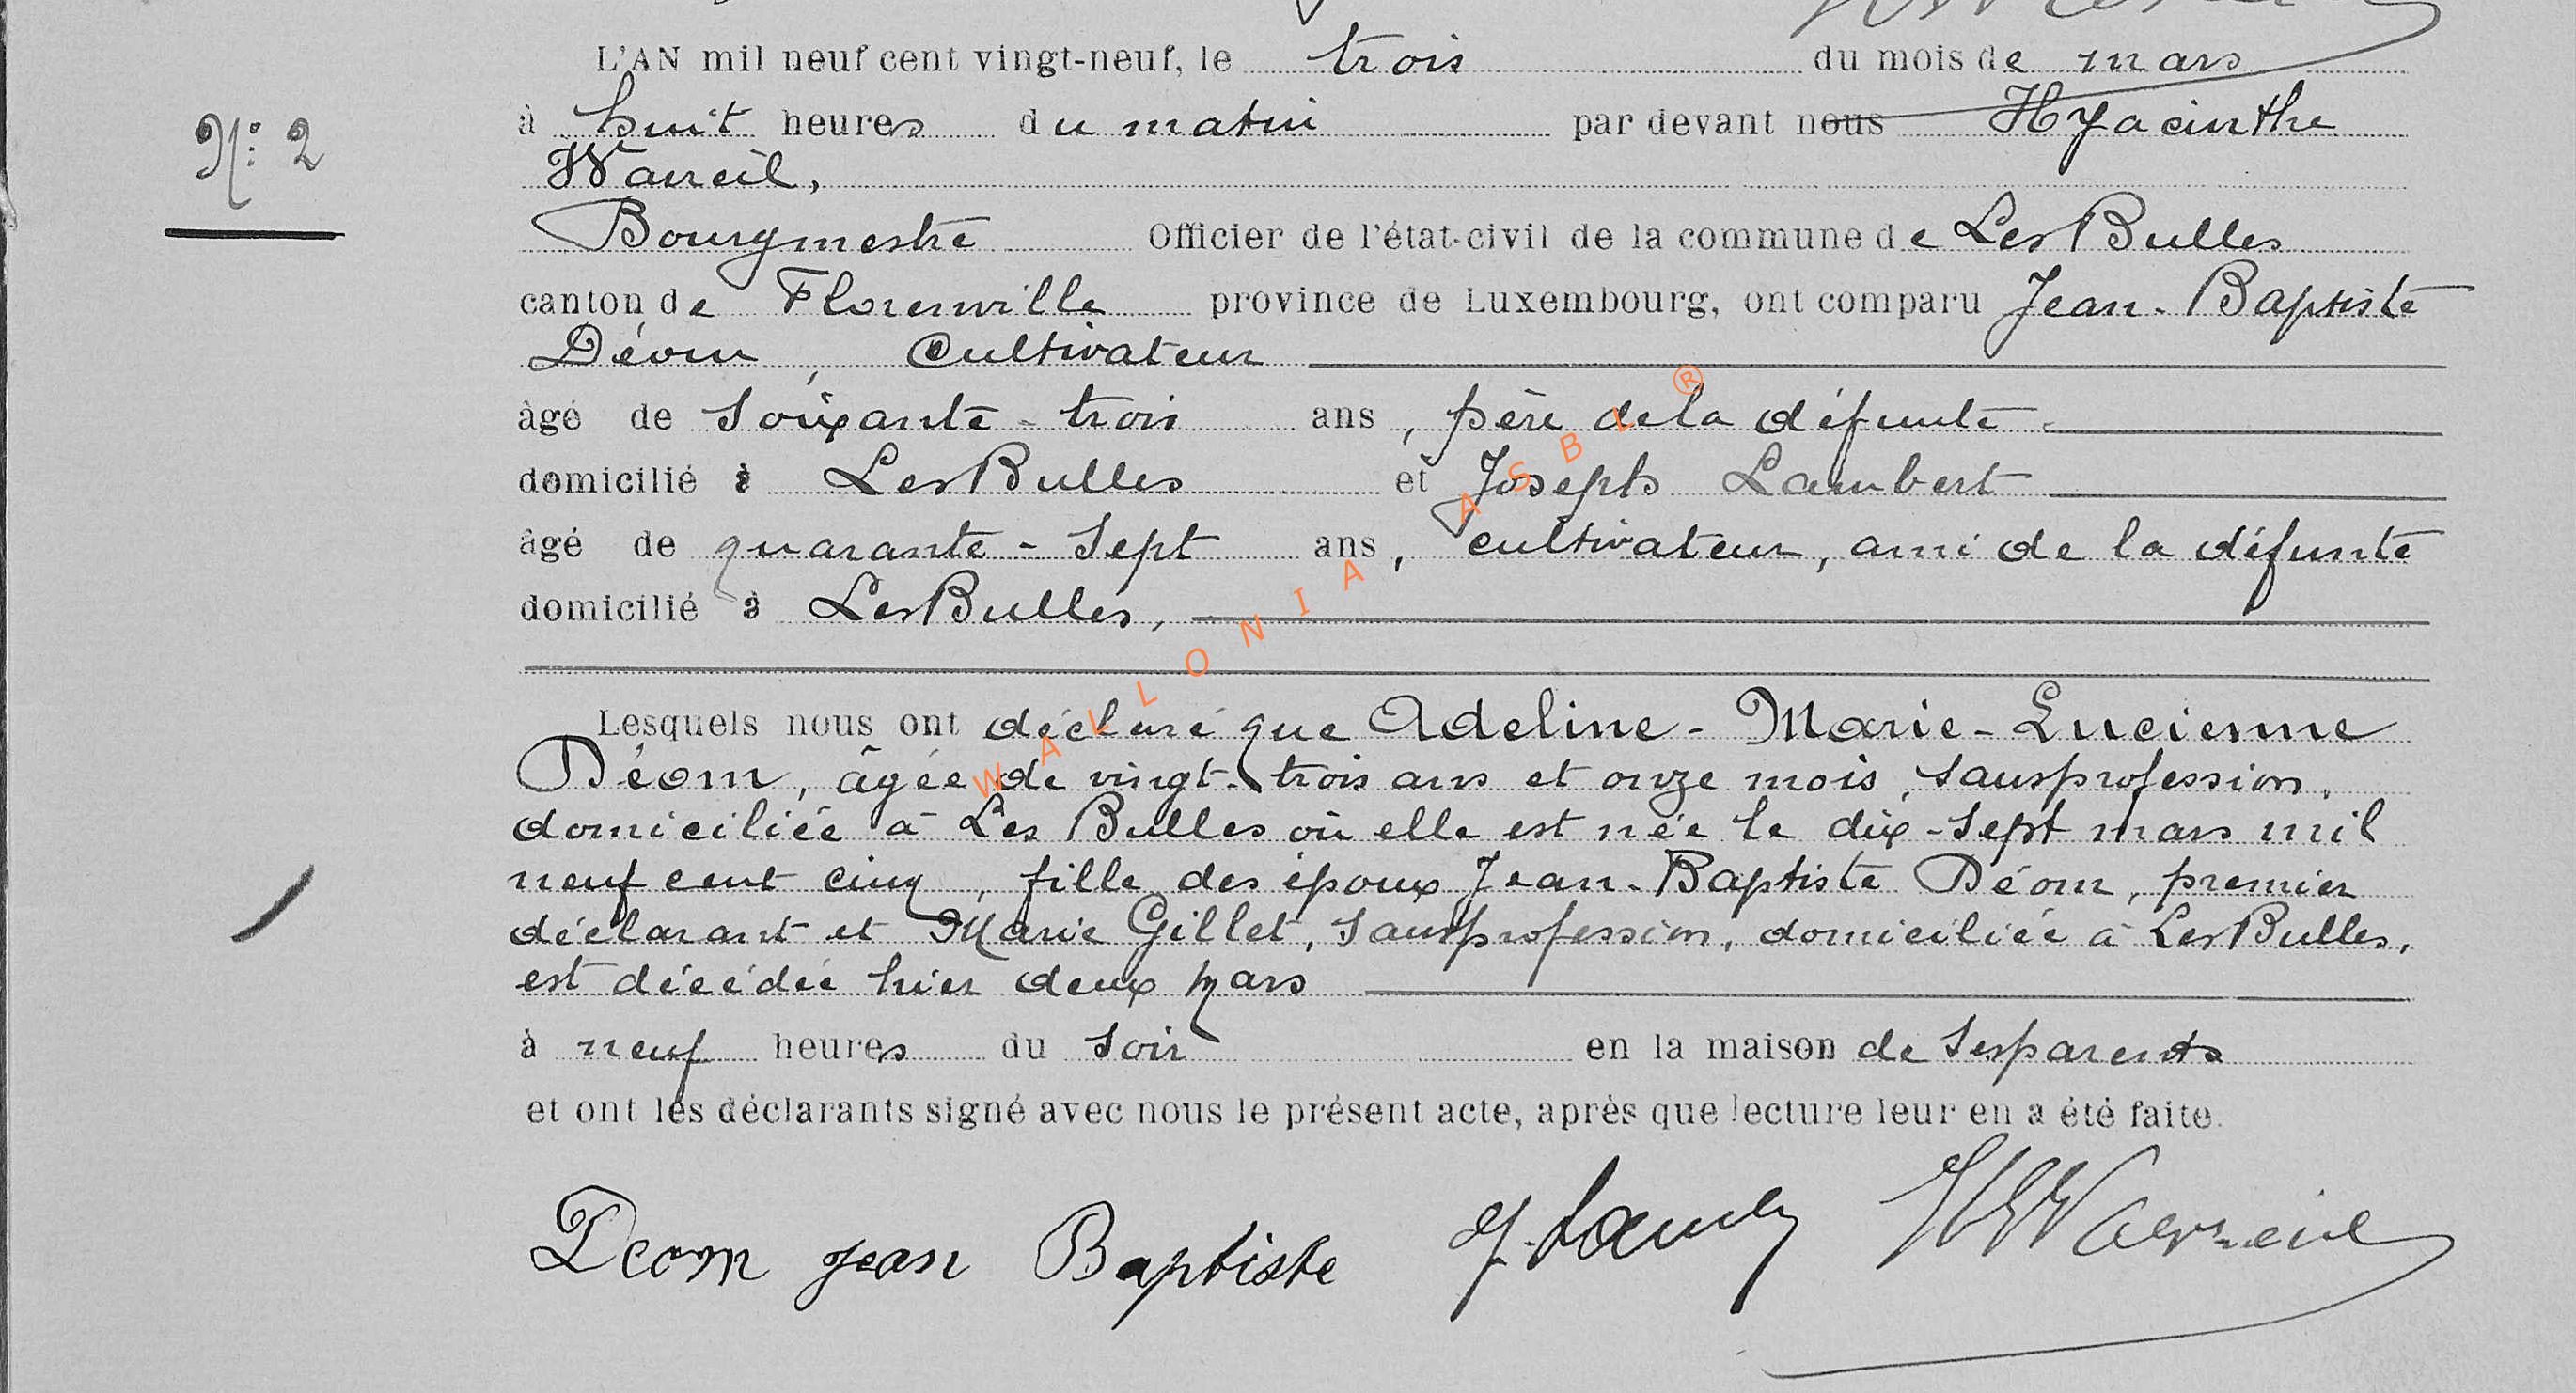 L'AN mil neuf cent vingt-neuf, le trois du mois de mars
N° 2
à huit heures du matin par devant nous Hyacinthe
Wauveil,
Bourgmestre Officier de l'état-civil de la commune de Les Bulles
canton de Florenville province de Luxembourg, ont comparu Jean-Baptiste
Déom, Cultivateur
âgé de soixante-trois ans, père de la défunte
domicilié à Les Bulles et Joseph Lambert
âgé de quarante-sept ans, cultivateur, ami de la défunte
domicilié à Les Bulles,
Lesquels nous ont déclaré que Adeline-Marie-Lucienne
Déom, âgée de vingt-trois ans et onze mois, sans profession,
domiciliée à Les Bulles où elle est née le dix-sept mars mil
neuf cent cinq, fille des époux Jean-Baptiste Déom, premier
déclarant et Marie Gillet, sans profession, domiciliée à Les Bulles,
est décédée hier deux mars
à neuf heures du soir en la maison de ses parents
et ont les déclarants signé avec nous le présent acte, après que lecture leur en a été faite.
Deom Jean Baptiste
WALLONIA ASBL ®